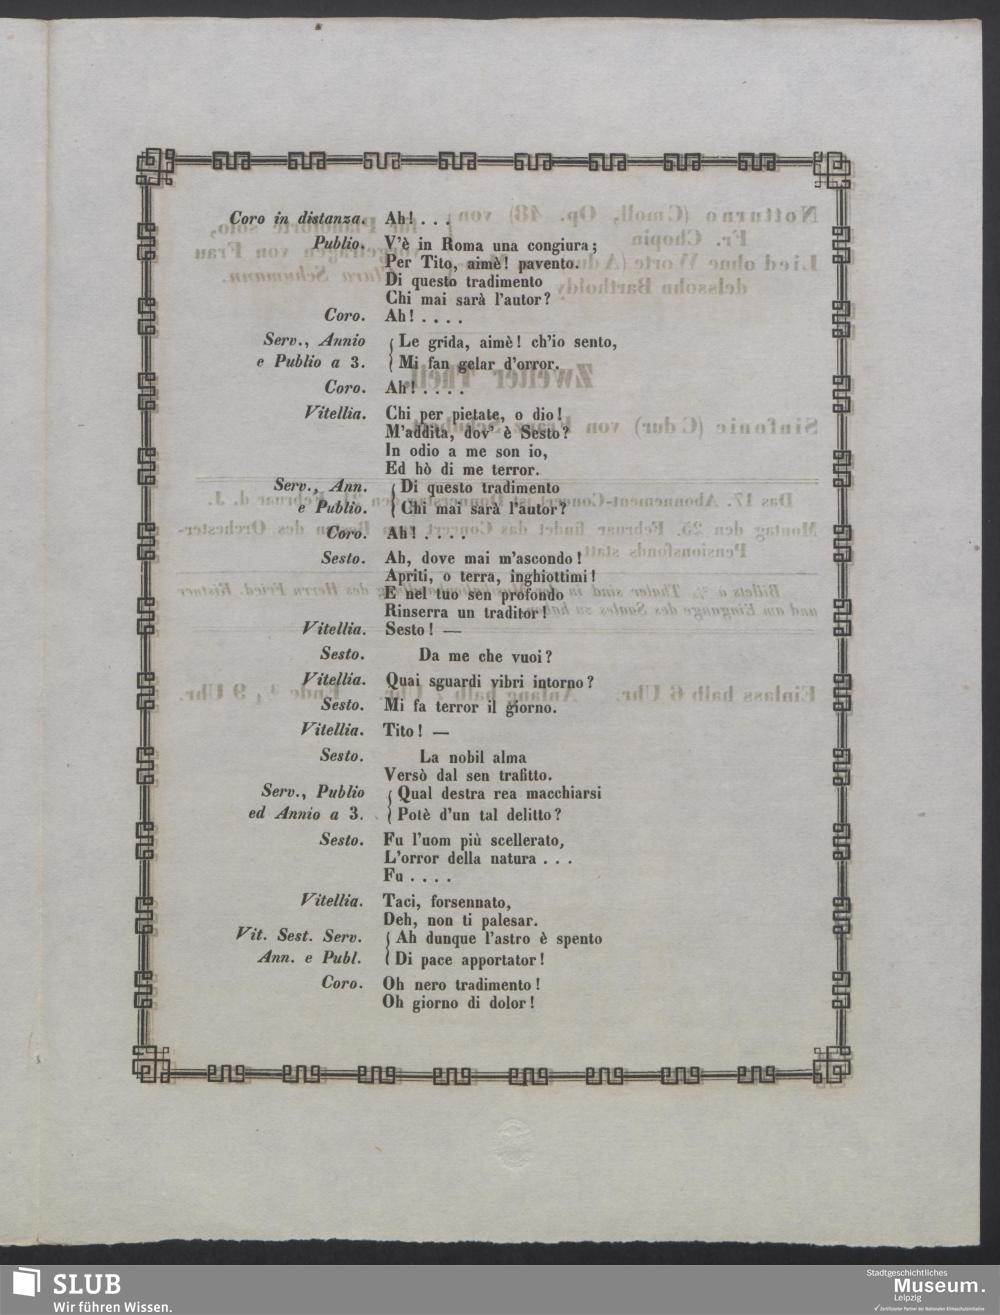 Coro in distanza. Ah! . . .
Publio. V'è in Roma una congiura;
Per Tito, aimè! pavento.
Di questo tradimento
Chi mai sarà l'autor?
Coro. Ah! . . . .
Serv., Annio { Le grida, aimè! ch'io sento,
e Publio a 3. { Mi fan gelar d'orror.
Coro. Ah! . . . .
Vitellia. Chi per pietate, o dio!
M'addita, dov' è Sesto?
In odio a me son io,
Ed hò di me terror.
Serv., Ann. { Di questo tradimento
e Publio. { Chi mai sarà l'autor?
Coro. Ah! . . . .
Sesto. Ah, dove mai m'ascondo!
Apriti, o terra, inghiottimi!
E nel tuo sen profondo
Rinserra un traditor!
Vitellia. Sesto! —
Sesto. Da me che vuoi?
Vitellia. Quai sguardi vibri intorno?
Sesto. Mi fa terror il giorno.
Vitellia. Tito! —
Sesto. La nobil alma
Versò dal sen trafitto.
Serv., Publio { Qual destra rea macchiarsi
ed Annio a 3. { Potè d'un tal delitto?
Sesto. Fu l'uom più scellerato,
L'orror della natura . . .
Fu . . . .
Vitellia. Taci, forsennato,
Deh, non ti palesar.
Vit. Sest. Serv. { Ah dunque l'astro è spento
Ann. e Publ. { Di pace apportator!
Coro. Oh nero tradimento!
Oh giorno di dolor!
SLUB
Wir führen Wissen.
Stadtgeschichtliches
Museum.
Leipzig